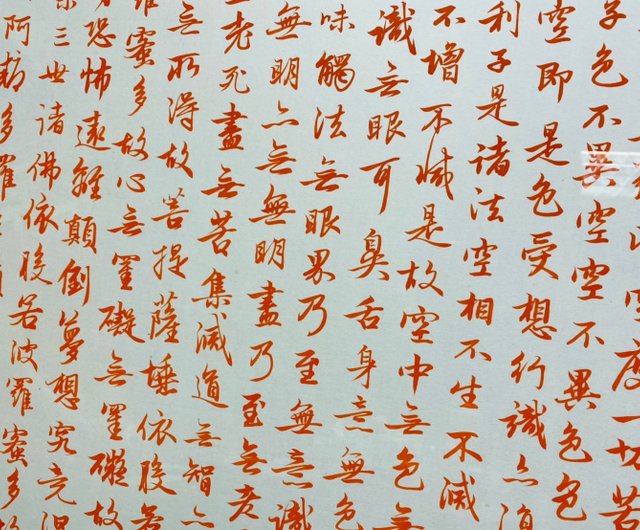 空度一切苦
子色不異空空不異色色
空即是色受想行識亦復
利子是諸法空相不生不滅
不增不減是故空中无色无
識无眼耳鼻舌身意無色
味觸法无眼界乃至無意識
無明亦无無明盡乃至无老
老死盡无苦集滅道无智亦
无所得故菩提薩埵依般若
羅蜜多故心无罣礙无罣礙故
恐怖遠離顛倒夢想究竟涅
三世諸佛依般若波羅蜜多
阿耨多羅